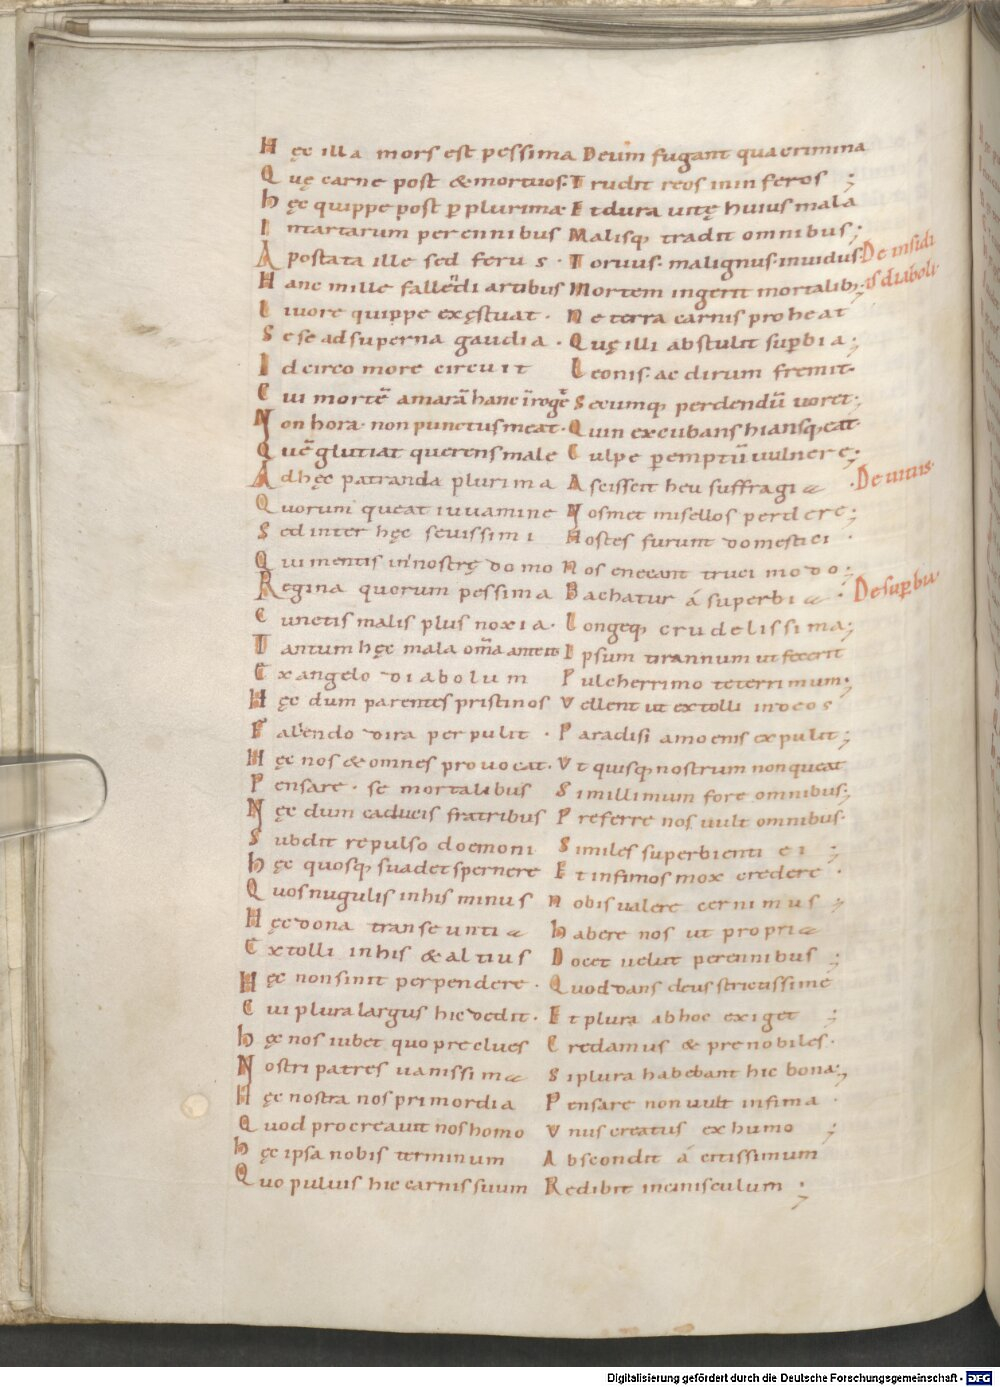 Hęc illa mors est pessima Deum fugant qua crimina
Quę carne post & mortuos· Trudit reos in inferos ;
hęc quippe post p plurima Et dura uitę huius mala
Intartarum perennibus Malisq; tradit omnibus;
Apostata ille sed ferus · Toruus· malignus· inuidus De insidi
Hanc mille fallendi artibus Mortem ingerit mortalib; is diaboli·
Liuore quippe exęstuat · Ne terra carnis proheat
Sese ad superna gaudia · Quę illi abstulit supbia;
Idcirco more circuit Leonis· ac dirum fremit·
Cui mortē amarā hanc Secumq; perdendū uoret;
Non hora· non punctus meat· Quin excubans hiansq; eat
Quē glutiat querens male Culpe pemptū uulnere;
Ad hęc patranda plurima Asciscit heu suffragia · De uitiis·
Quorum queat iuuamine Nosmet misellos perdere;
Sed inter hęc seuissimi Hostes furunt domestici ·
Qui mentis in nostrę domo Nos enecant truci modo;
Regina quorum pessima Bachatur á superbia · De supbia·
Cunctis malis plus noxia · Longeq; crudelissima;
Tantum hęc mala om̄a anteit Ipsum tirannum ut fecerit
Ex angelo diabolum Pulcherrimo teterrimum;
Hęc dum parentes pristinos Vellent ut extolli in deos
Fallendo dira perpulit · Paradisi amoenis expulit;
Hęc nos & omnes prouocat· Vt quisq; nostrum non queat
Pensare · se mortalibus Simillimum fore omnibus;
Hęc dum caducis fratribus Preferre nos uult omnibus·
Subdit repulso doemoni Similes superbienti ei ;
hęc quosq; suadet spernere Et infimos mox credere ·
Quos nugulis in his minus nobis ualere cernimus ;
Hęc dona transeuntia habere nos ut propria
Extolli in his & altius Docet uelut perennibus ;
Hęc non sinit perpendere · Quod dans deus strictissime
Cui plura largus hic dedit · Et plura ab hoc exiget ;
hęc nos iubet quo preclues Credamus & prenobiles·
Nostri patres uanissima Si plura habebant hic bona;
Hęc nostra nos primordia Pensare non uult infima ·
Quod procreauit nos homo Vnus creatus ex humo ;
hęc ipsa nobis terminum Abscondit á citissimum
Quo puluis hic carnis suum Redibit in cinisculum ;
Digitalisierung gefördert durch die Deutsche Forschungsgemeinschaft - DFG